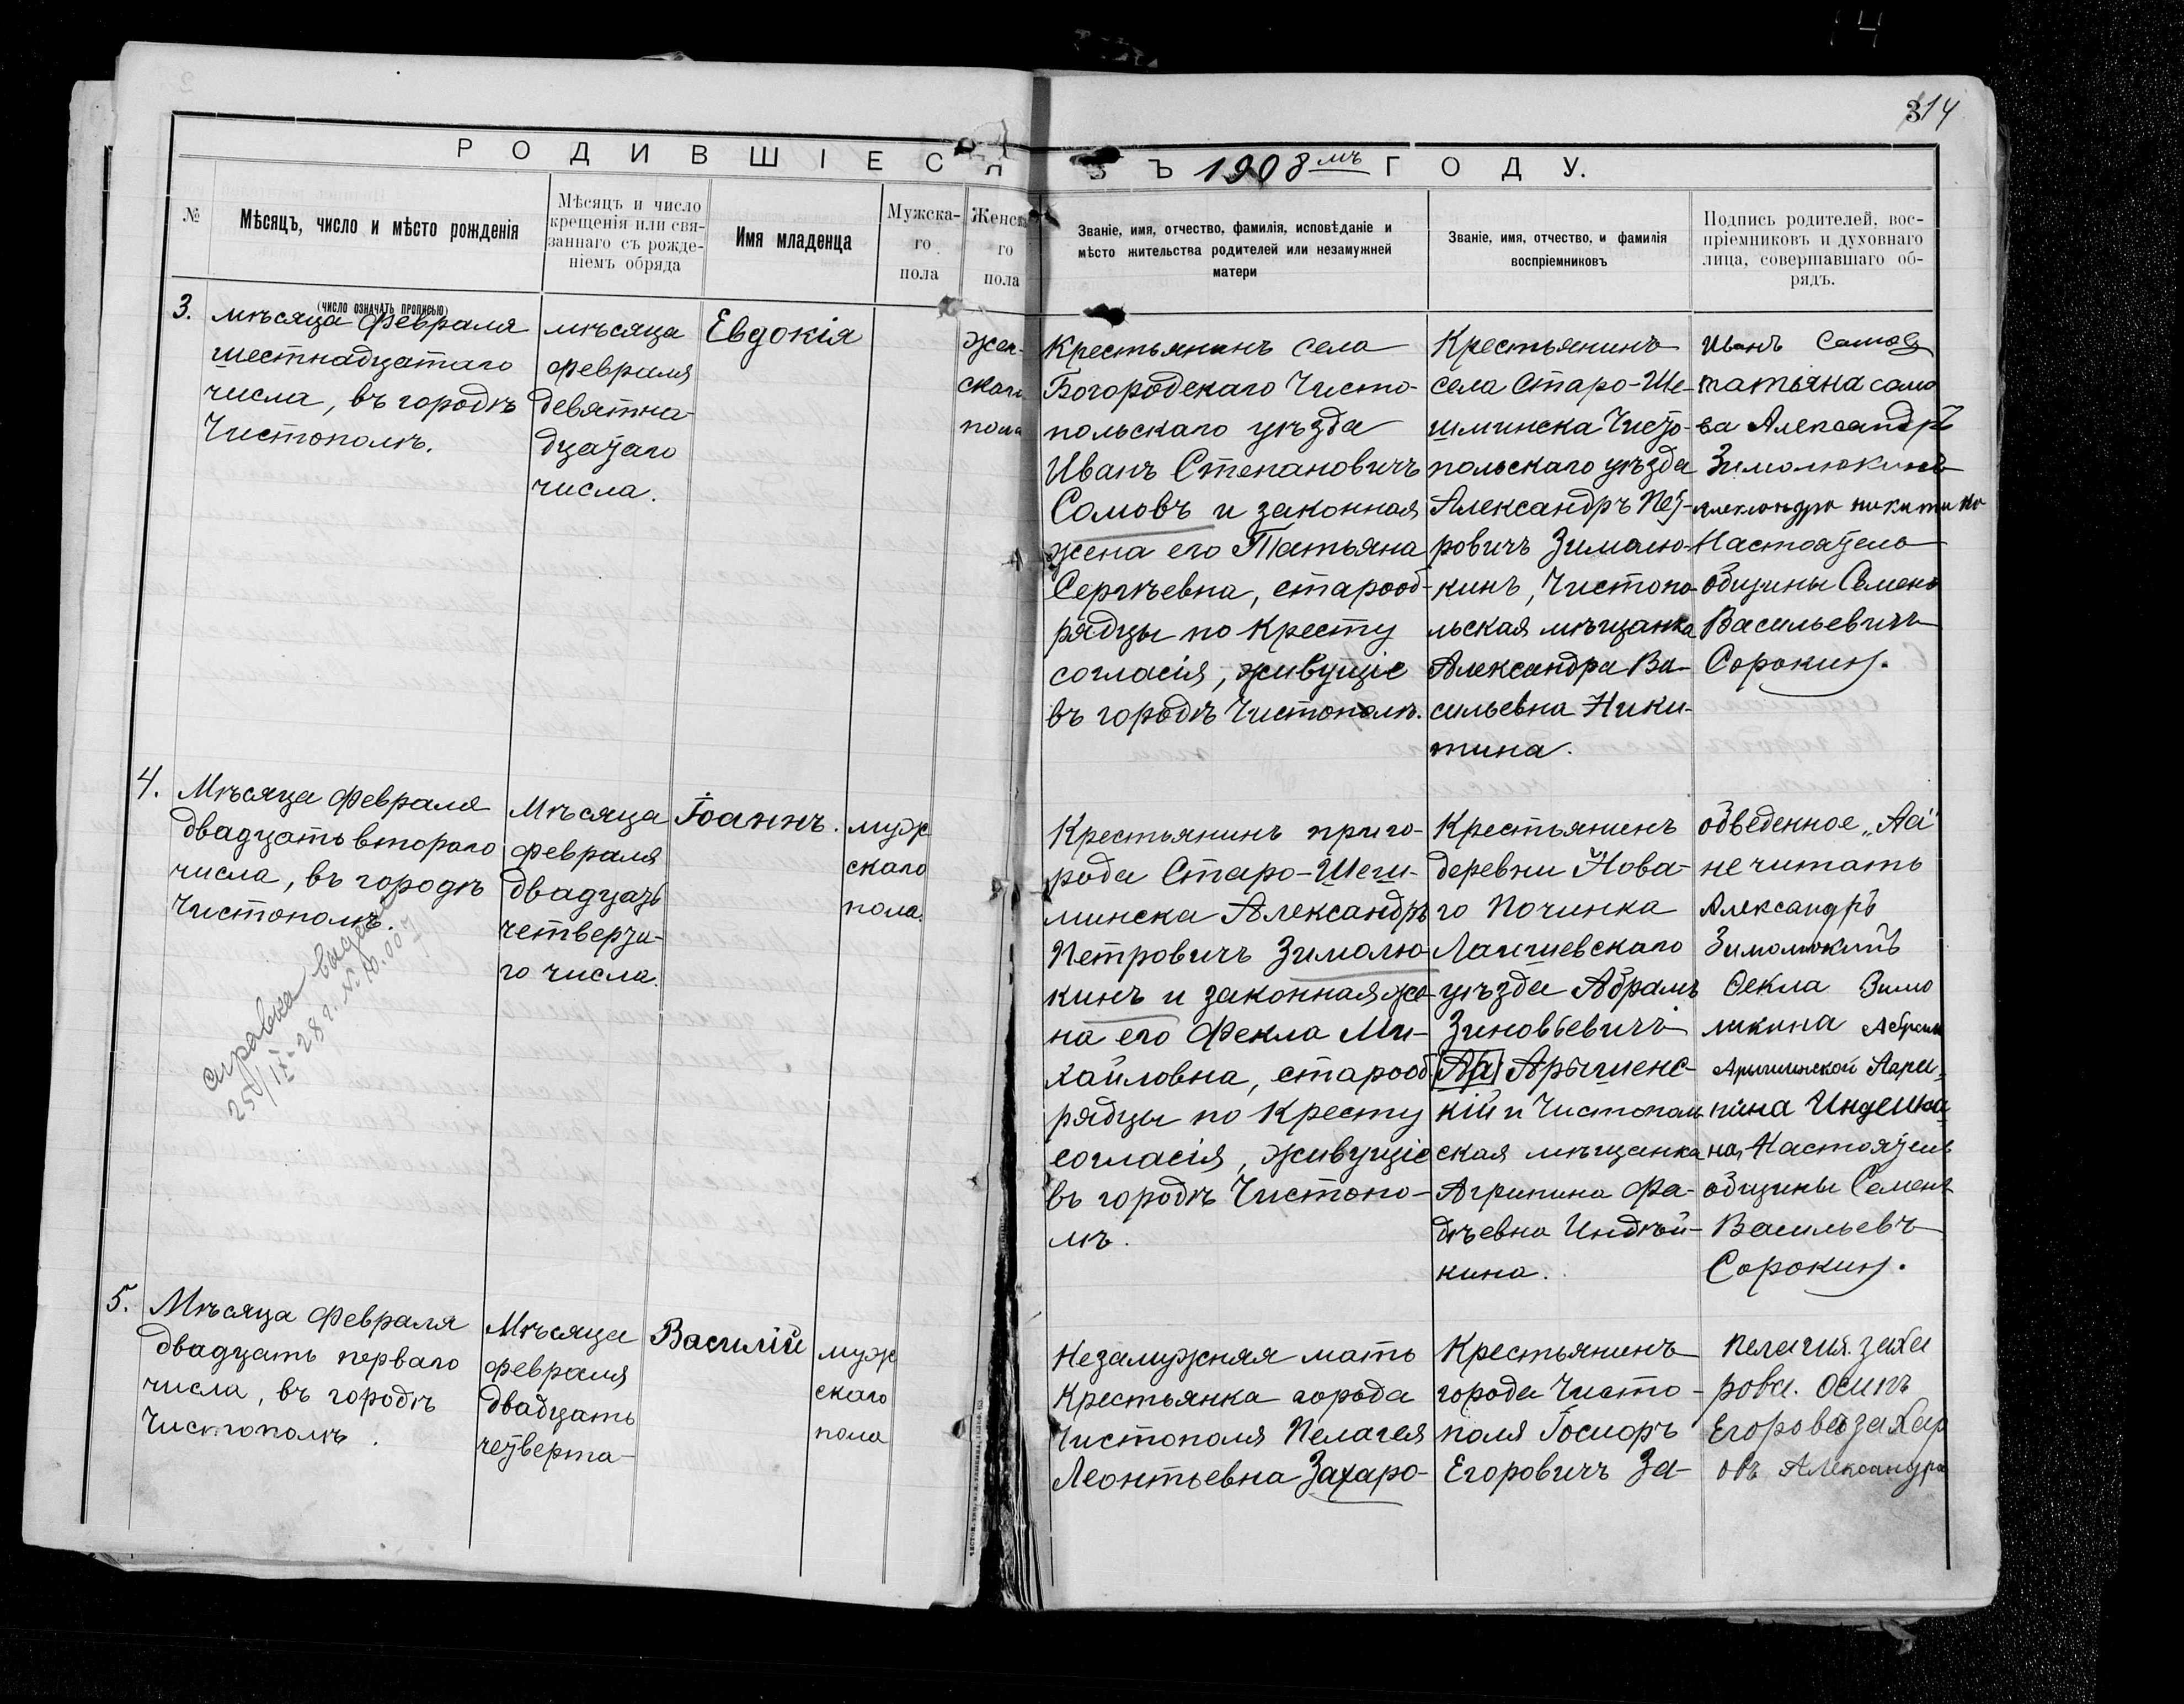 314
РОДИВШІЕСЯ ВЪ 1908мъ ГОДУ.
№
Мѣсяцъ, число и мѣсто рожденія
(число означать прописью)
Мѣсяцъ и число
крещенія или свя-
заннаго съ рожде-
ніемъ обряда
Имя младенца
Мужска-
го
пола
Женск
го
пола
Званіе, имя, отчество, фамилія, исповѣданіе и
мѣсто жительства родителей или незамужней
матери
Званіе, имя, отчество, и фамилія
воспріемниковъ
Подпись родителей, вос-
пріемниковъ и духовнаго
лица, совершавшаго об-
рядъ.
3.
мѣсяца Февраля
шестнадцатаго
числа, въ городѣ
Чистополѣ.
мѣсяца
февраля
девятна-
дцатаго
числа.
Евдокія
жен-
скаго
пола
Крестьянинъ села
Богородскаго Чисто-
польскаго уѣзда
Иванъ Степановичъ
Сомовъ и законная
жена его Татьяна
Сергѣевна, старооб-
рядцы по Кресту
согласія, живущіе
въ городѣ Чистополѣ.
Крестьянинъ
села Старо-Ше-
шминска Чисто-
польскаго уѣзда
Александръ Пет-
ровичъ Зимолю-
кинъ, Чистопо-
льская мѣщанка
Александра Ва-
сильевна Ники-
тина.
Иванъ Самов
татьяна само
ва Александръ
Зимолюкинъ
Александра никитина
Настоятель
общины Семенъ
Васильевичъ
Сорокин.
4.
Мѣсяца Февраля
двадцать второго
числа, въ городѣ
Чистополѣ.
справка выдана
25/IX-28 г.
Мѣсяца
февраля
двадцать
четверта-
го числа.
Іоаннъ.
муж
скаго
пола.
Крестьянинъ приго-
рода Старо-Шеш-
минска Александръ
Петровичъ Зимолю-
кинъ и законная же-
на его Фекла Ми-
хайловна, старооб-
рядцы по Кресту
согласія, живущіе
въ городѣ Чистопо-
лѣ.
Крестьянинъ
деревни Нова-
го Починка
Лаишевскаго
уѣзда Абрамъ
Зиновьевичъ
Аа Арышенс-
кій и Чистополь
ская мѣщанка
Агрипина Фа-
дѣевна Индѣй-
кина.
обведенное „Аа“
не читать
Александръ
Зимолюкинъ
Фекла Зимо
люкина Абрам
Арышенской Агри-
пина Индейки
на, Настоятель
общины Семенъ
Васильевъ
Сорокин.
5.
Мѣсяца Февраля
двадцать перваго
числа, въ городѣ
Чистополѣ.
Мѣсяца
февраля
двадцать
четверта-
Василій
муж
скаго
пола
Незамужняя мать
Крестьянка города
Чистополя Пелагея
Леонтьевна Захаро-
Крестьянинъ
города Чисто-
поля Іосифъ
Егоровичъ За-
пелагия. заха
рова. Осипъ
Егоровъ захар
овъ Александра